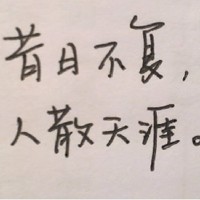 昔日不复，
人散天涯。